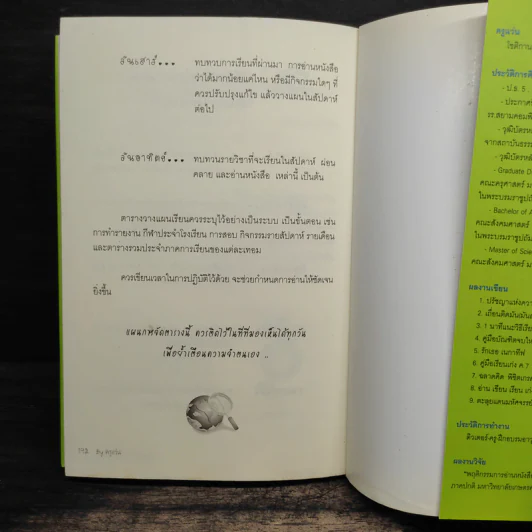 วันเสาร์... ทบทวนการเรียนที่ผ่านมา การอ่านหนังสือ
ว่าได้มากน้อยแค่ไหน หรือมีกิจกรรมใดๆ ที่
ควรปรับปรุงแก้ไข แล้ววางแผนในสัปดาห์
ต่อไป
วันอาทิตย์... ทบทวนรายวิชาที่จะเรียนในสัปดาห์ ผ่อน
คลาย และอ่านหนังสือ เหล่านี้ เป็นต้น
ตารางวางแผนเรียนควรระบุไว้อย่างเป็นระบบ เป็นขั้นตอน เช่น
การทำรายงาน กีฬาประจำโรงเรียน การสอบ กิจกรรมรายสัปดาห์ รายเดือน
และตารางรวมประจำภาคการเรียนของแต่ละเทอม
ควรเขียนเวลาในการปฏิบัติไว้ด้วย จะช่วยกำหนดการอ่านให้ชัดเจน
ยิ่งขึ้น
แผนภาพจัดตารางนี้ ควรติดไว้ในที่ที่มองเห็นได้ทุกวัน
เพื่อย้ำเตือนความจำตนเอง ..
By ครูแว่น
ครูแว่น
ประวัติการศึ
- ป.ธ. 5
- ประกาศ
รร.สยามคอมพิ
- วุฒิบัตร
จากสถาบันธรร
- วุฒิบัตร
- Graduate D
คณะครุศาสตร์ ม
ในพระบรมราชูปถั
- Bachelor of A
คณะสังคมศาสตร์
ในพระบรมราชูปถั
- Master of Scie
คณะสังคมศาสตร์ ม
ผลงานเขียน
1. ปรัชญาแห่งคว
2. เถื่อนคิดมันมัน
3. 1 นาทีแนะวิธีเรี
4. คู่มือบัณฑิตจบให
5. รักเธอ เนกาทีฟ
6. คู่มือเรียนเก่ง ค.7
7. ฉลาดคิด พิชิตเกร
8. อ่าน เขียน เรียน เก่
9. ตะลุยแดนมหัศจรรย์
ประวัติการทำงาน
ติวเตอร์-ครู-ฝึกอบรมเยาว
ผลงานวิจัย
"พฤติกรรมการอ่านหนังสื
ภาคปกติ มหาวิทยาลัยเกษตร